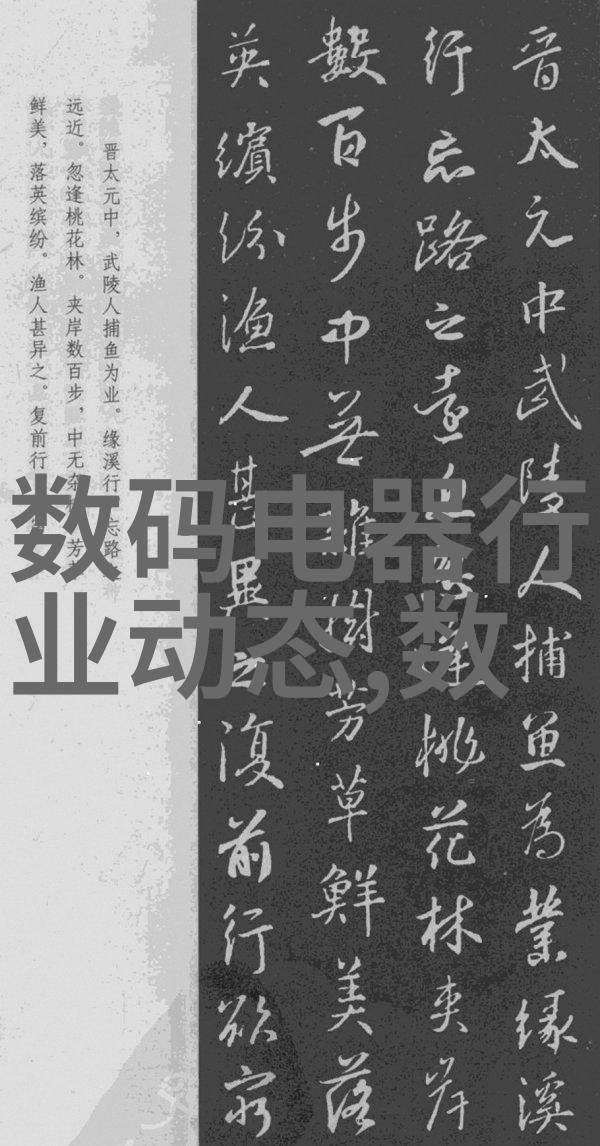 晋太元中武陵人捕魚為業緣溪
行忘路之遠近忽逢桃花林夾岸
數百步中無雜樹芳草鮮美落
英繽紛漁人甚異之復前行欲窮
晋太元中，武陵人捕鱼为业。缘溪行 忘路
远近。忽逢桃花林。夹岸数百步，中无杂 芳
鲜美，落英缤纷。渔人甚异之。复前行
数码电器行
业动态,数